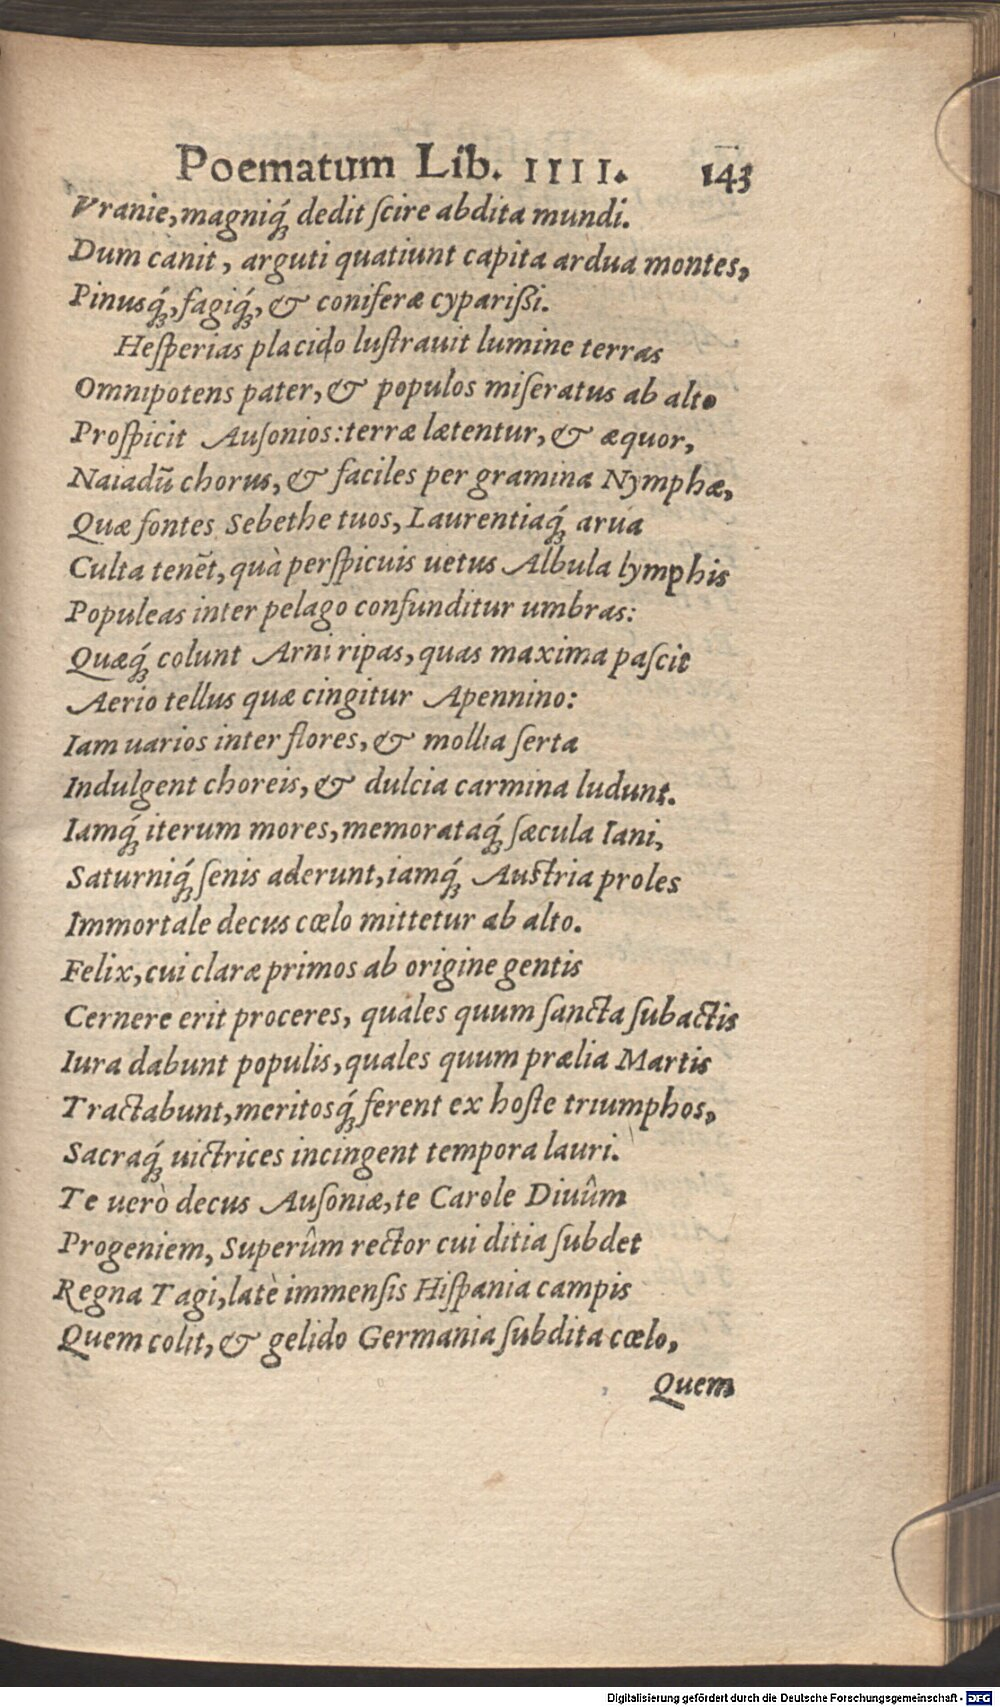 Poematum Lib. IIII. 143
Vranie, magniq́; dedit scire abdita mundi.
Dum canit, arguti quatiunt capita ardua montes,
Pinusq́;, fagiq́;, & coniferæ cyparißi.
Hesperias placido lustrauit lumine terras
Omnipotens pater, & populos miseratus ab alto
Prospicit Ausonios: terræ lætentur, & æquor,
Naiadū chorus, & faciles per gramina Nymphæ,
Quæ fontes Sebethe tuos, Laurentiaq́; arua
Culta tenēt, quà perspicuis uetus Albula lymphis
Populeas inter pelago confunditur umbras:
Quæq́; colunt Arni ripas, quas maxima pascit
Aerio tellus quæ cingitur Apennino:
Iam uarios inter flores, & mollia serta
Indulgent choreis, & dulcia carmina ludunt.
Iamq́; iterum mores, memorataq́; sæcula Iani,
Saturniq́; senis aderunt, iamq́; Austria proles
Immortale decus cœlo mittetur ab alto.
Felix, cui claræ primos ab origine gentis
Cernere erit proceres, quales quum sancta subactis
Iura dabunt populis, quales quum prælia Martis
Tractabunt, meritosq́; ferent ex hoste triumphos,
Sacraq́; uictrices incingent tempora lauri.
Te uerò decus Ausoniæ, te Carole Diuûm
Progeniem, Superûm rector cui ditia subdet
Regna Tagi, latè immensis Hispania campis
Quem colit, & gelido Germania subdita cœlo,
Quem
Digitalisierung gefördert durch die Deutsche Forschungsgemeinschaft - DFG